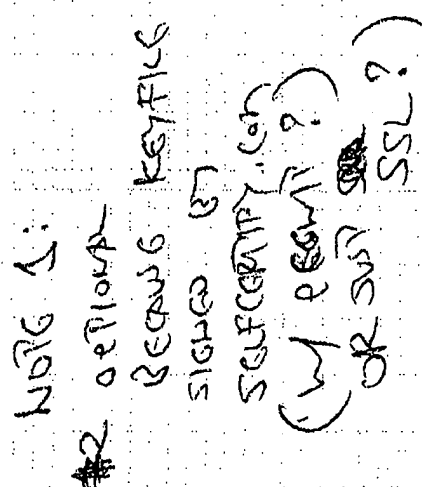 NOTE 1:
#2 OPTIONAL
BECAUSE KEYFILE
SIGNED BY
SELFCERTIFY.COM
(W/ PEGWIT ?)
OR JUST SSL ?)